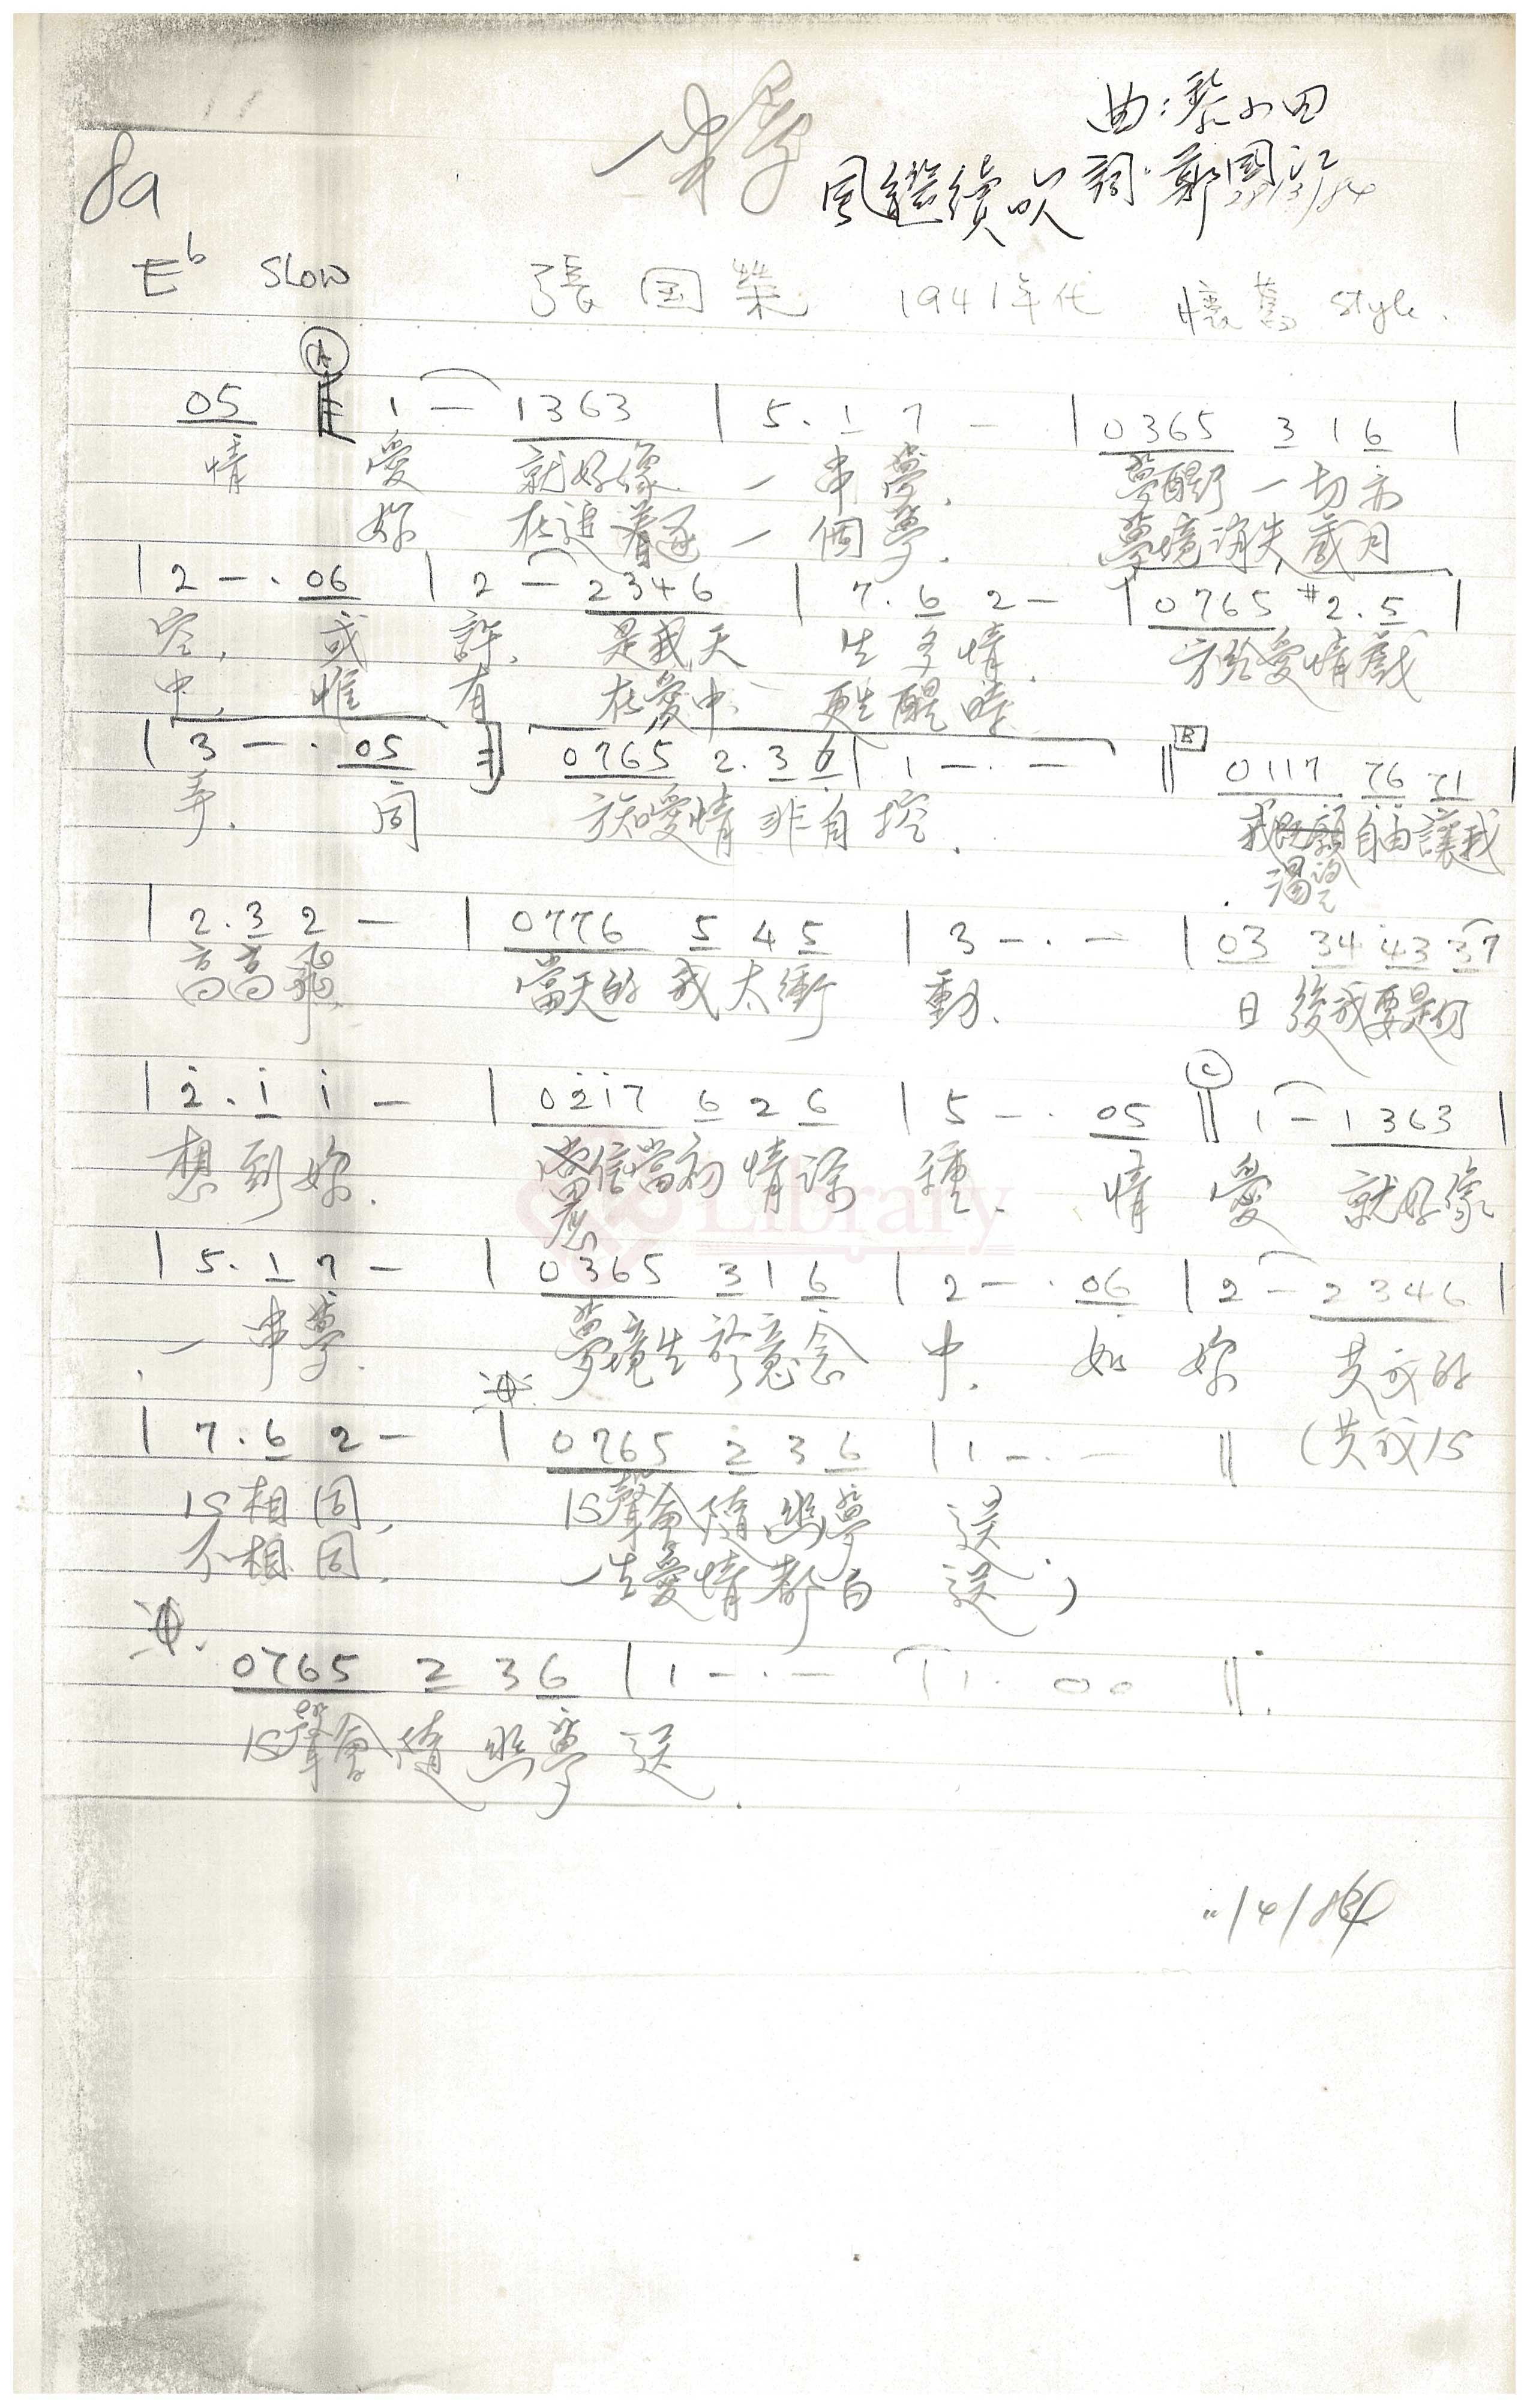 曲:黎小田
8a 一串夢
風繼續吹 詞:鄭國江 28/3/84
E♭ Slow 張国榮 1941年代 懷舊 style.
A
05 1 — 1363 | 5. 1 7 — | 0365 3 1 6 |
情 愛 就好像 一串夢. 夢醒了一切亦
妳 在追着逐 一個夢. 夢境消失歲月
| 2 — . 06 | 2 — 2346 | 7. 6 2 — | 0765 #2. 5 |
空, 或 許, 是我天 生多情. 方給愛情戲
中, 惟 有 在愛中 更生醒時
| 3 — . 05 0765 2. 3 6 | 1 — . — || B 0117 76 71 |
弄. 同 方知愛情非自控. 我既願自由讓我
渴望
| 2. 3 2 — | 0776 5 4 5 | 3 — . — | 03 34 43 37
高高飛, 當天的我太衝 動. 日後我要是仍
C
| 2. 1 1 — | 0217 6 2 6 | 5 — . 05 || 1 — 1363 |
想到妳. 當信當初情深 種. 情 愛 就好像
| 5. 1 7 — | 0365 3 1 6 | 2 — . 06 | 2 — 2346 |
一串夢. 夢境生於意念 中. 如 妳 共我的
| 7. 6 2 — | 0765 2 3 6 | 1 — . — || (共我仍
仍相同, 仍聲會隨幽夢 送.
不相同, 一生愛情都白 送.)
0765 2 3 6 | 1 — . — | 1. 0 0 ||
仍聲會隨幽夢送.
11/4/84
Library